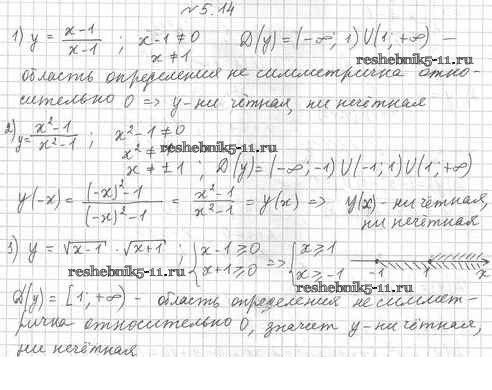 №5.14
1) y = (x-1)/(x-1) ; x-1≠0 D(y)=(-∞;1)∪(1;+∞) —
x≠1
reshebnik5-11.ru
область определения не симметрична отно-
сительно 0 => y-ни чётная, ни нечётная
2) y = (x²-1)/(x²-1) ; x²-1≠0
reshebnik5-11.ru
x²≠1
x≠±1 ; D(y)=(-∞;-1)∪(-1;1)∪(1;+∞)
y(-x) = ((-x)²-1)/((-x)²-1) = (x²-1)/(x²-1) = y(x) => y(x) - ни чётная,
ни нечётная
3) y = √(x-1) · √(x+1) ; { x-1≥0 x+1≥0 => { x≥1 x≥-1 -1 1 x
reshebnik5-11.ru
reshebnik5-11.ru
D(y)=[1;+∞) - область определения не симмет-
рична относительно 0, значит y-ни чётная,
ни нечётная